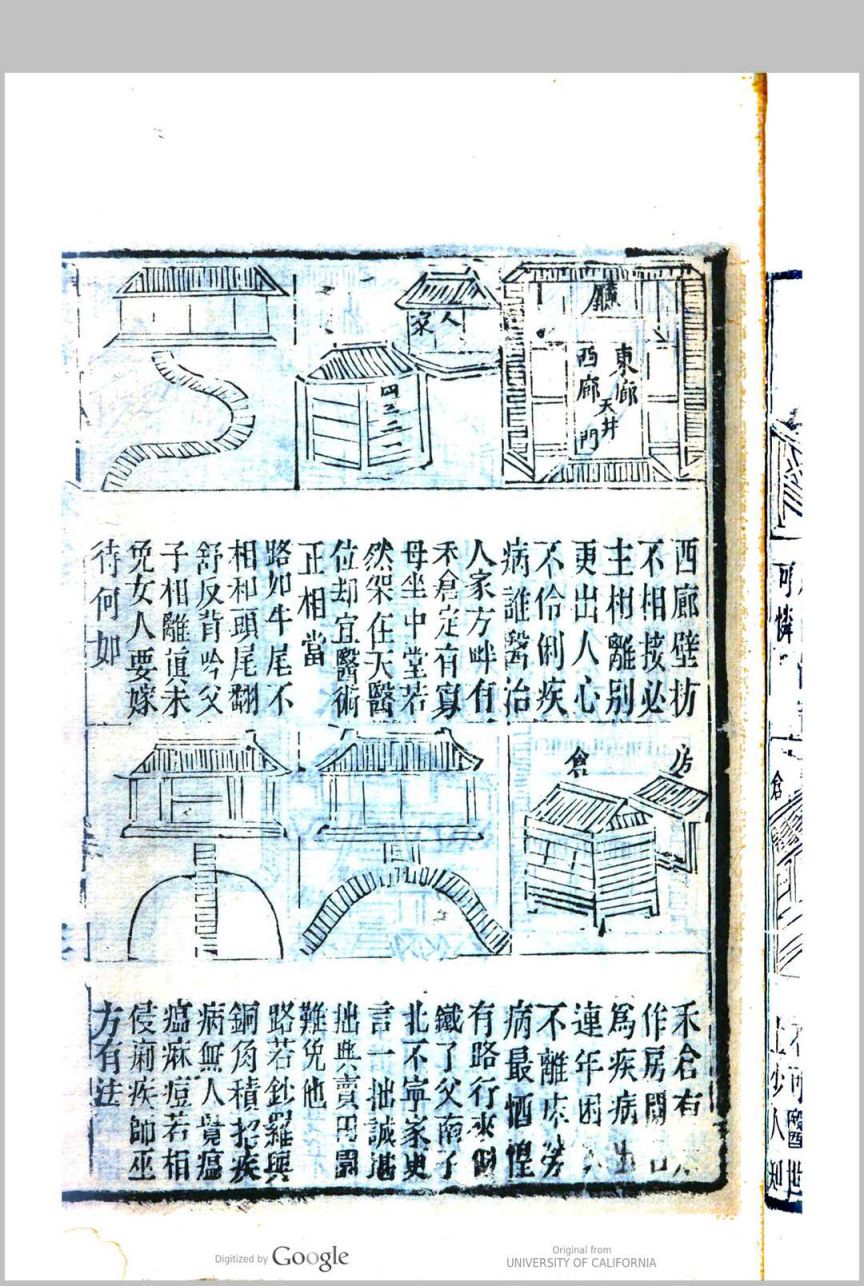 廳
東廊
西廊
天井
門
人家
四三二一
西廊壁枋
不相接必
主相離别
更出人心
不伶俐疾
病誰醫治
人家方畔有
禾倉定有寡
母坐中堂若
然架在天醫
位却宜醫術
正相當
路如牛尾不
相和頭尾翻
舒反背吟父
子相離真未
免女人要嫁
待何如
房
倉
禾倉有
作房門
為疾病
連年困
不離床勞
病最恓惶
有路行來似
鐵丫父南子
北不寧家更
言一拙誠堪
拙典賣田園
難免他
路若鈔羅與
銅角積招疾
病無人覺瘟
瘟麻痘若相
侵痢疾師巫
方有法
可憐
倉
不可醫世
上少人知
Digitized by Google
Original from
UNIVERSITY OF CALIFORNIA